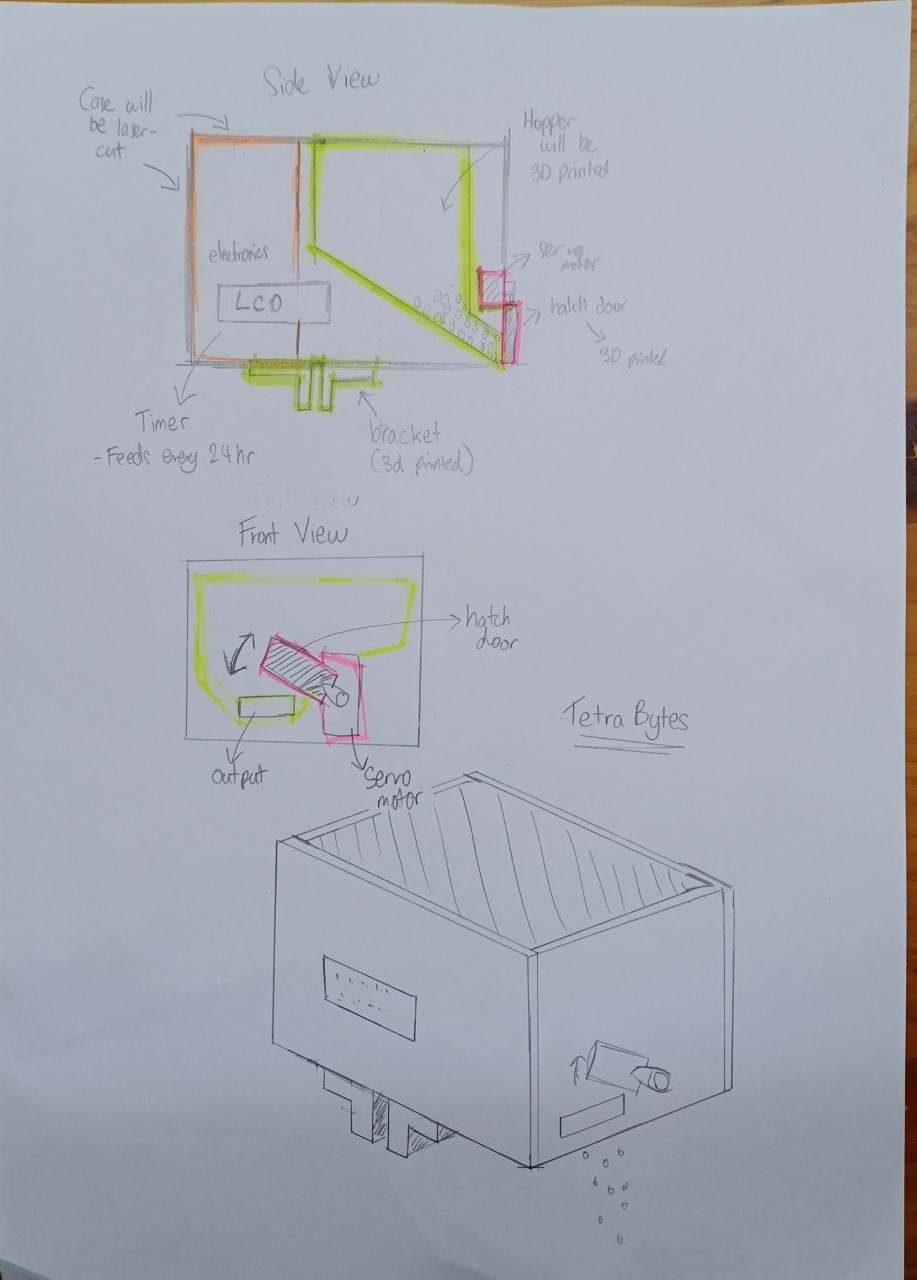 Side View
Case will
be laser-
cut
Hopper
will be
3D printed
electronics
LCD
servo
motor
hatch door
3D printed
Timer
-Feeds every 24hr
bracket
(3d printed)
Front View
hatch
door
output
Servo
motor
Tetra Bytes